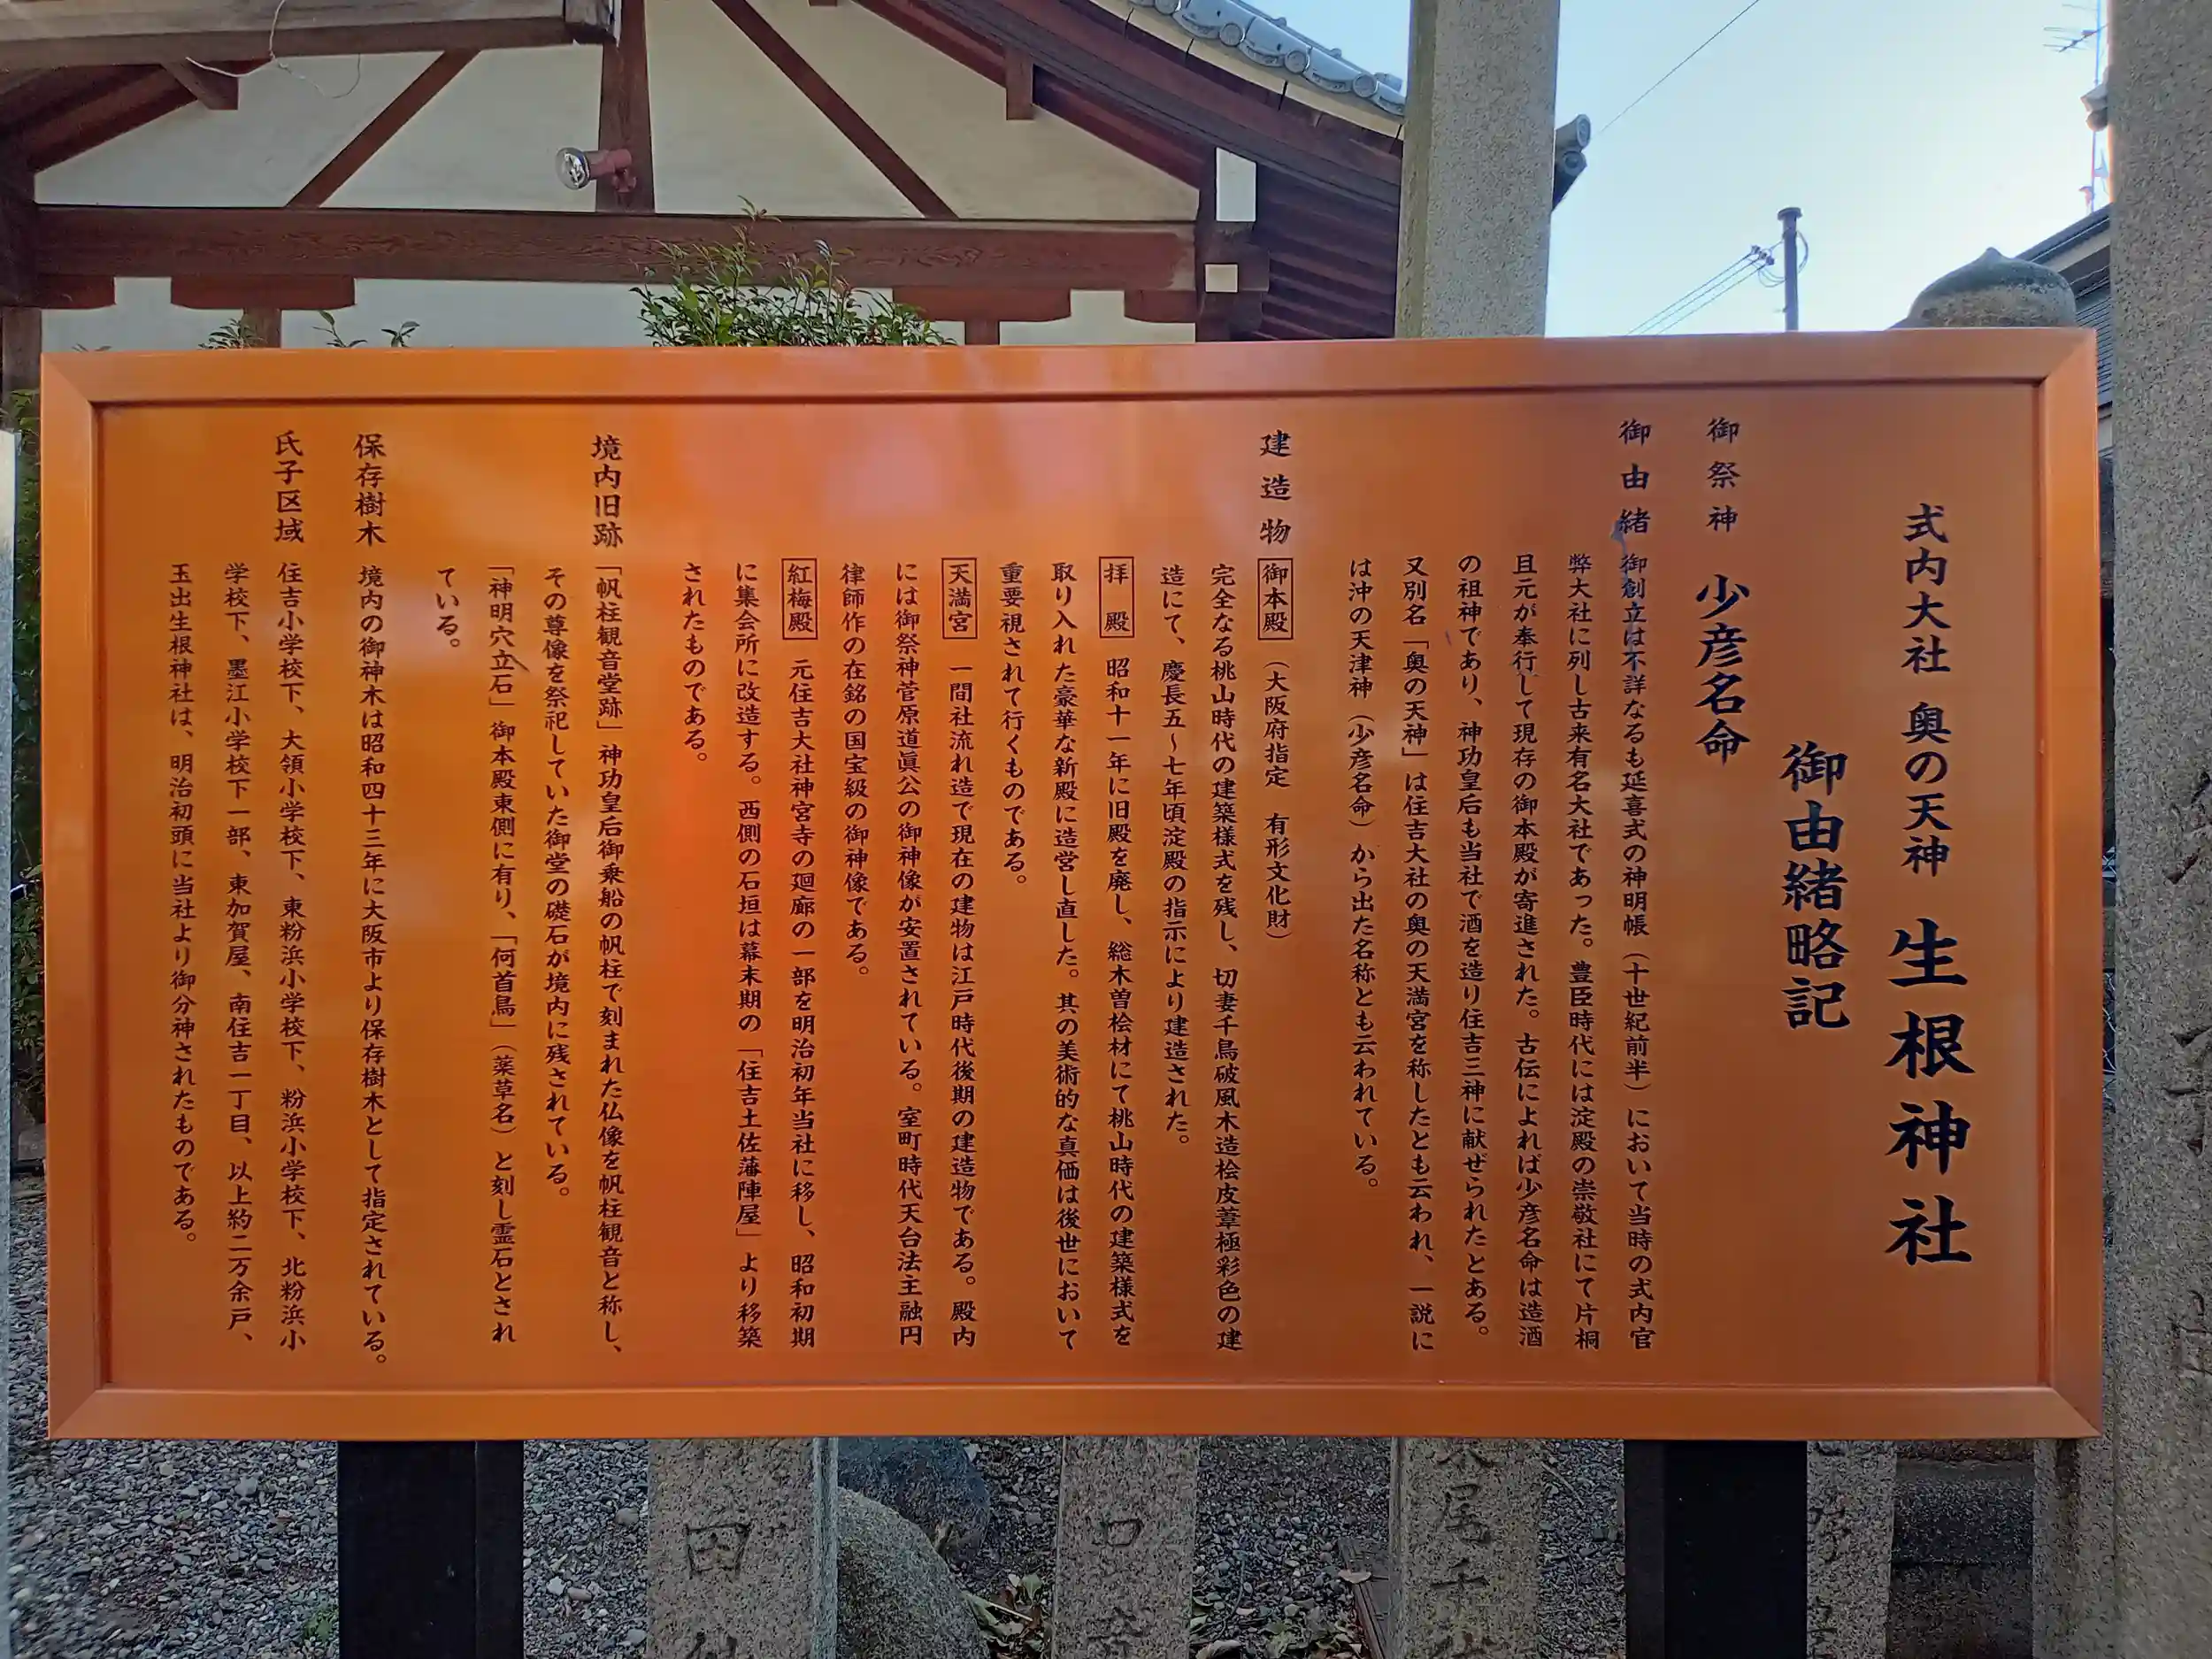 式内大社 奥の天神 生根神社
御由緒略記
御祭神 少彦名命
御由緒 御創立は不詳なるも延喜式の神明帳（十世紀前半）において当時の式内官
弊大社に列し古来有名大社であった。豊臣時代には淀殿の崇敬社にて片桐
且元が奉行して現存の御本殿が寄進された。古伝によれば少彦名命は造酒
の祖神であり、神功皇后も当社で酒を造り住吉三神に献ぜられたとある。
又別名「奥の天神」は住吉大社の奥の天満宮を称したとも云われ、一説に
は沖の天津神（少彦名命）から出た名称とも云われている。
建造物 御本殿（大阪府指定 有形文化財）
完全なる桃山時代の建築様式を残し、切妻千鳥破風木造桧皮葺極彩色の建
造にて、慶長五～七年頃淀殿の指示により建造された。
拝殿 昭和十一年に旧殿を廃し、総木曽桧材にて桃山時代の建築様式を
取り入れた豪華な新殿に造営し直した。其の美術的な真価は後世において
重要視されて行くものである。
天満宮 一間社流れ造で現在の建物は江戸時代後期の建造物である。殿内
には御祭神菅原道眞公の御神像が安置されている。室町時代天台法主融円
律師作の在銘の国宝級の御神像である。
紅梅殿 元住吉大社神宮寺の廻廊の一部を明治初年当社に移し、昭和初期
に集会所に改造する。西側の石垣は幕末期の「住吉土佐藩陣屋」より移築
されたものである。
境内旧跡 「帆柱観音堂跡」神功皇后御乗船の帆柱で刻まれた仏像を帆柱観音と称し、
その尊像を祭祀していた御堂の礎石が境内に残されている。
「神明穴立石」御本殿東側に有り、「何首烏」（薬草名）と刻し霊石とされ
ている。
保存樹木 境内の御神木は昭和四十三年に大阪市より保存樹木として指定されている。
氏子区域 住吉小学校下、大領小学校下、東粉浜小学校下、粉浜小学校下、北粉浜小
学校下、墨江小学校下一部、東加賀屋、南住吉一丁目、以上約二万余戸、
玉出生根神社は、明治初頭に当社より御分神されたものである。
田
口
尾